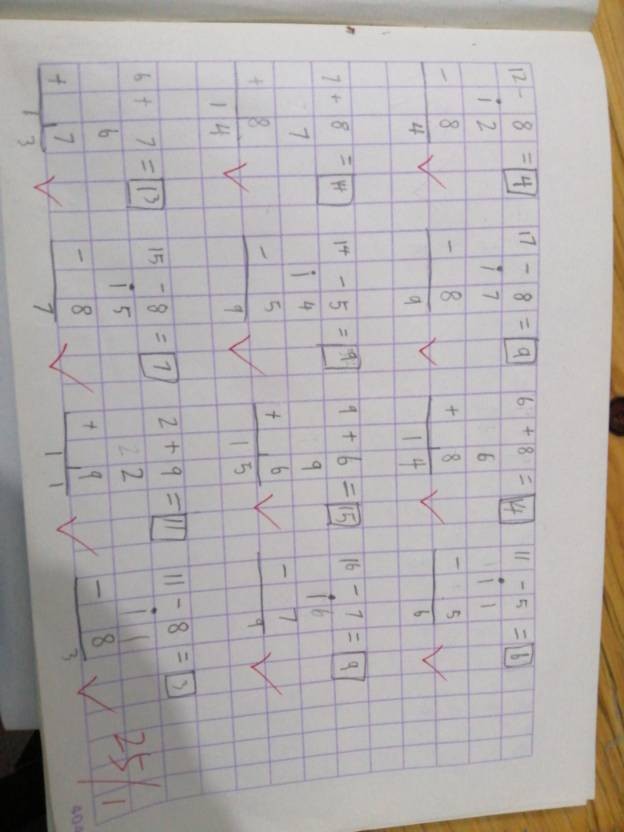 12 - 8 = 4 17 - 8 = 9 6 + 8 = 14 11 - 5 = 6
12 17 6 11
- 8 - 8 + 8 - 5
4 9 14 6
7 + 8 = 14 14 - 5 = 9 9 + 6 = 15 16 - 7 = 9
7 14 9 16
+ 8 - 5 + 6 - 7
14 9 15 9
6 + 7 = 13 15 - 8 = 7 2 + 9 = 11 11 - 8 = 3
6 15 2 11
+ 7 - 8 + 9 - 8
13 7 11 3
25/1